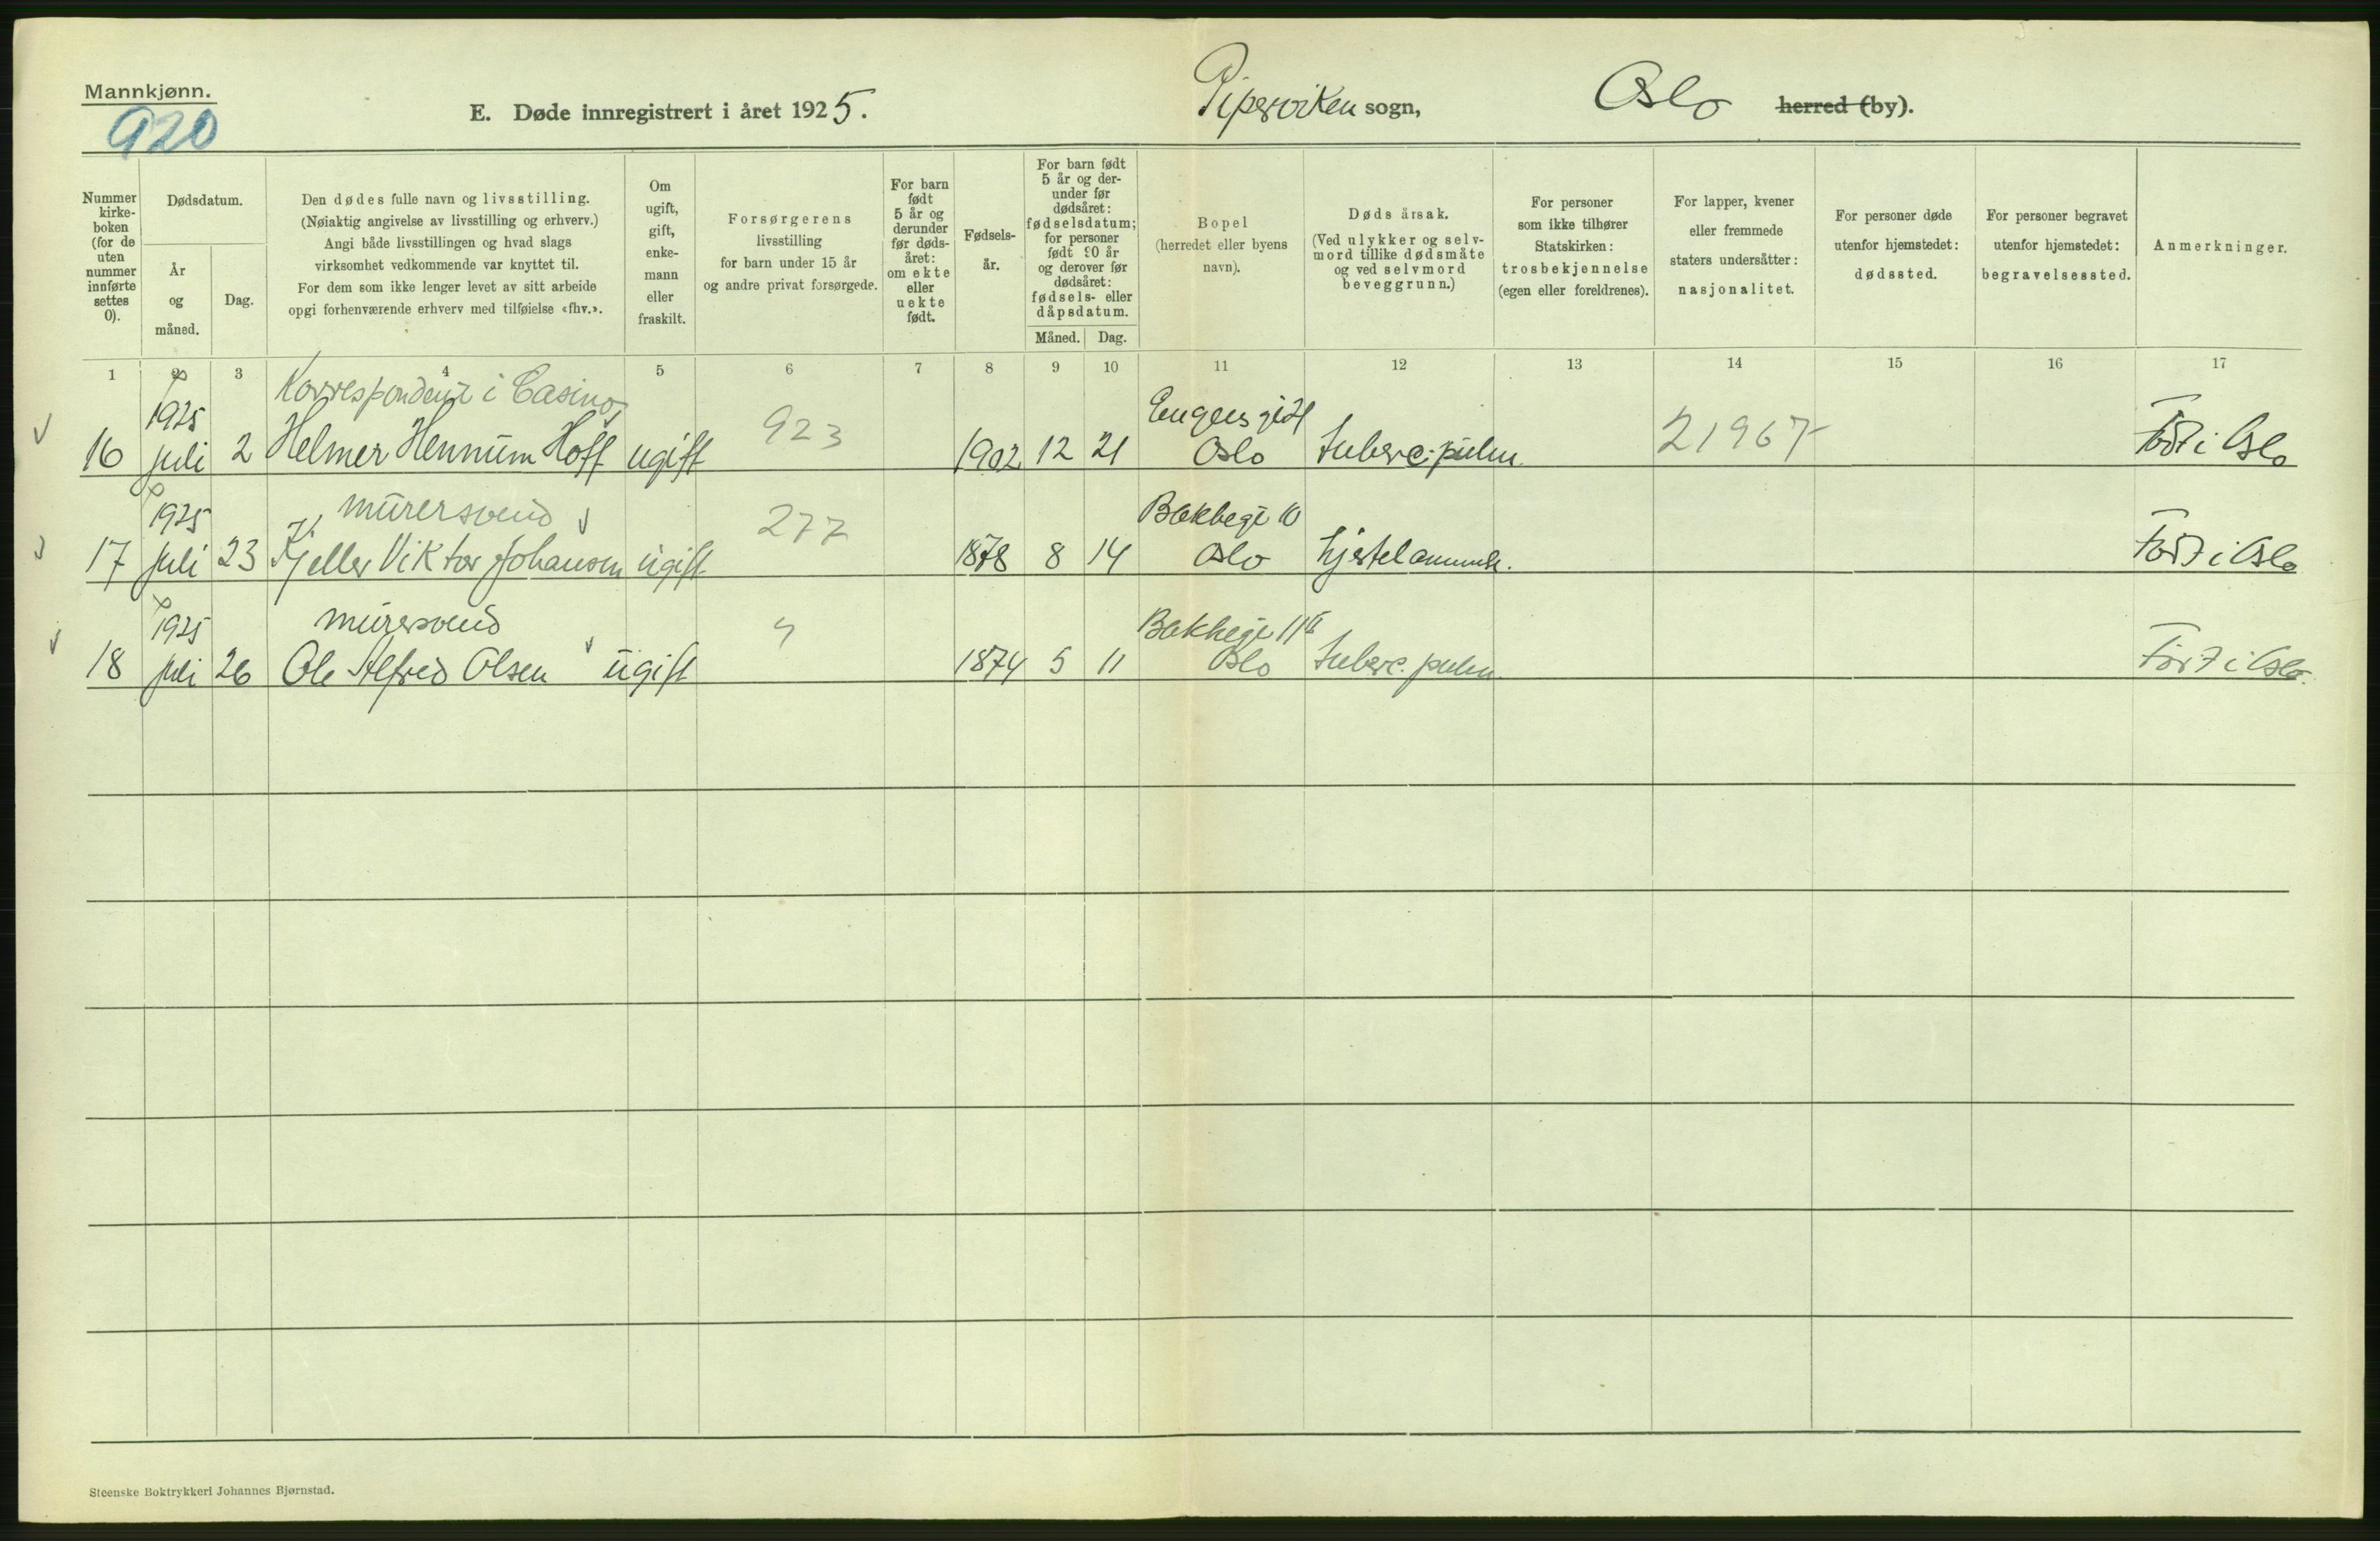 Mannkjønn.
920
E. Døde innregistrert i året 1925. Piperviken sogn, Oslo herred (by).
Nummer kirke- boken (for de uten nummer innførte settes 0).
Dødsdatum.
År og måned.
Dag.
Den dødes fulle navn og livsstilling.
(Nøiaktig angivelse av livsstilling og erhverv.)
Angi både livsstillingen og hvad slags
virksomhet vedkommende var knyttet til.
For dem som ikke lenger levet av sitt arbeide
opgi forhenværende erhverv med tilføielse «fhv.».
Om ugift, gift, enke- mann eller fraskilt.
Forsørgerens
livsstilling
for barn under 15 år
og andre privat forsørgede.
For barn født 5 år og derunder før døds- året: om ekte eller uekte født.
Fødsels- år.
For barn født 5 år og der- under før dødsåret: fødselsdatum; for personer født 90 år og derover før dødsåret: fødsels- eller dåpsdatum.
Måned. Dag.
Bopel
(herredet eller byens
navn).
Dødsårsak.
(Ved ulykker og selv-
mord tillike dødsmåte
og ved selvmord
beveggrunn.)
For personer
som ikke tilhører
Statskirken:
trosbekjennelse
(egen eller foreldrenes).
For lapper, kvener
eller fremmede
staters undersåtter:
nasjonalitet.
For personer døde
utenfor hjemstedet:
dødssted.
For personer begravet
utenfor hjemstedet:
begravelsessted.
Anmerkninger.
1 2 3 4 5 6 7 8 9 10 11 12 13 14 15 16 17
1925 Korrespondent i Casino 923 21967
16 juli 2 Helmer Hennum Hoff ugift 1902 12 21 Oslo Tuberc. pulm. Født i Oslo
1925 murersvend 277 Bakkegt 10
17 juli 23 Kjeller Viktor Johansen ugift 1878 8 14 Oslo hjertelammelse. Født i Oslo
1925 murersvend Bakkegt 11
18 juli 26 Ole Alfred Olsen ugift 1874 5 11 Oslo Tuberc. pulm. Født i Oslo.
Steenske Boktrykkeri Johannes Bjørnstad.